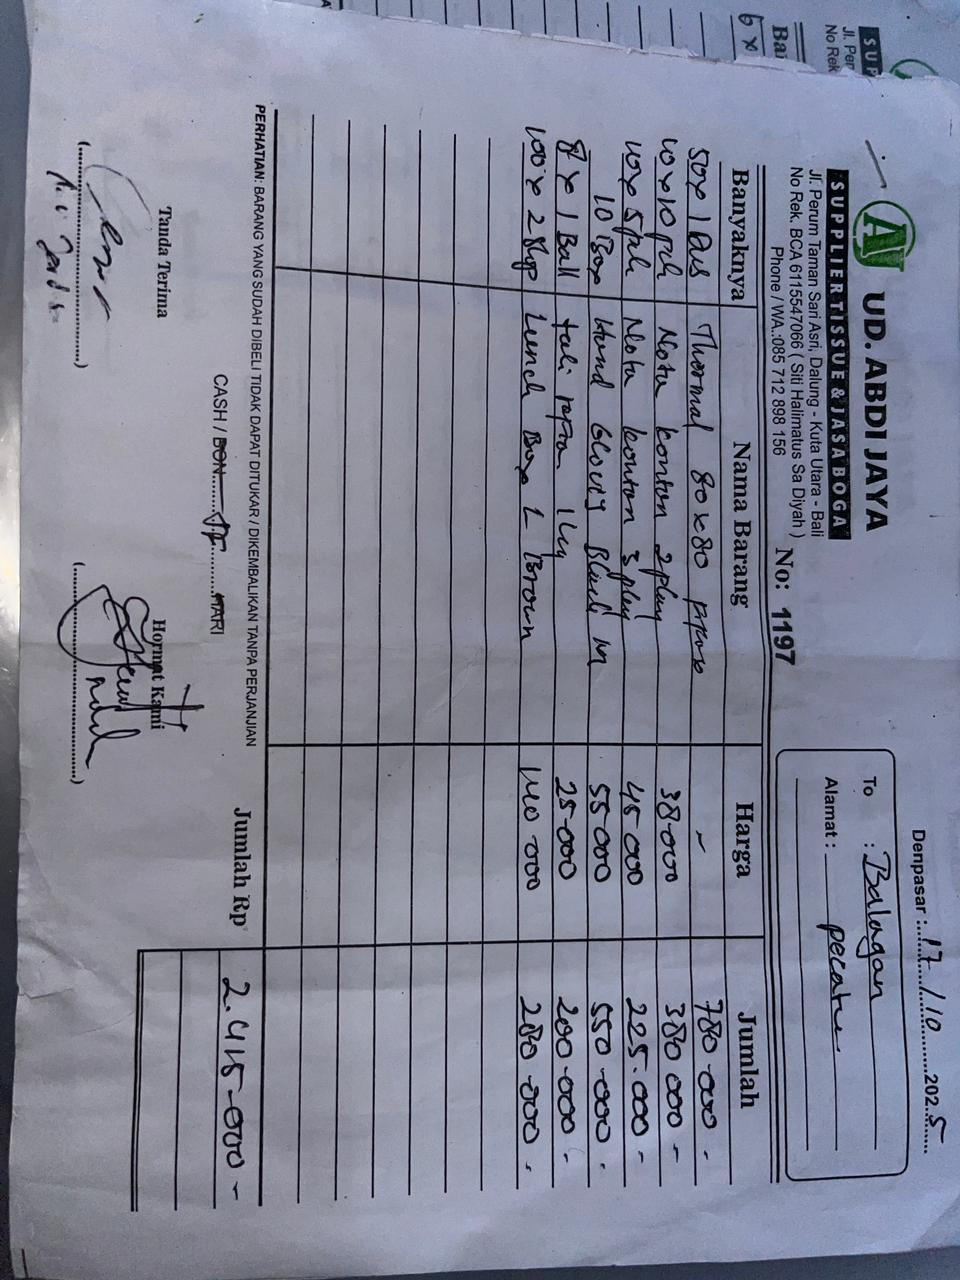 UD. ABDI JAYA
SUPPLIER TISSUE & JASA BOGA
Jl. Perum Taman Sari Asri, Dalung - Kuta Utara - Bali
No Rek. BCA 6115547066 ( Siti Halimatus Sa Diyah )
Phone / WA.:085 712 898 156
No: 1197
Denpasar : 17 / 10 2025
To : Balangan
Alamat : pecatu
Banyaknya Nama Barang Harga Jumlah
50 x 1 Thermal 80 x 80 - 780.000 -
10 x 10 pch Nota konton 2 play 38.000 380.000 -
10 x 5 pch Nota konton 3 play 45.000 225.000 -
10 Box Hand Glouvy Black M 55.000 550.000 -
8 x 1 Ball tali rapia 1 kg 25.000 200.000 -
100 x 2 Lunch Box L Brown 140.000 280.000 -
PERHATIAN: BARANG YANG SUDAH DIBELI TIDAK DAPAT DITUKAR / DIKEMBALIKAN TANPA PERJANJIAN
Jumlah Rp 2.415.000 -
CASH / BON HARI
Tanda Terima Hormat Kami
SUP
Jl. Per
No Rek
Ba
6 x